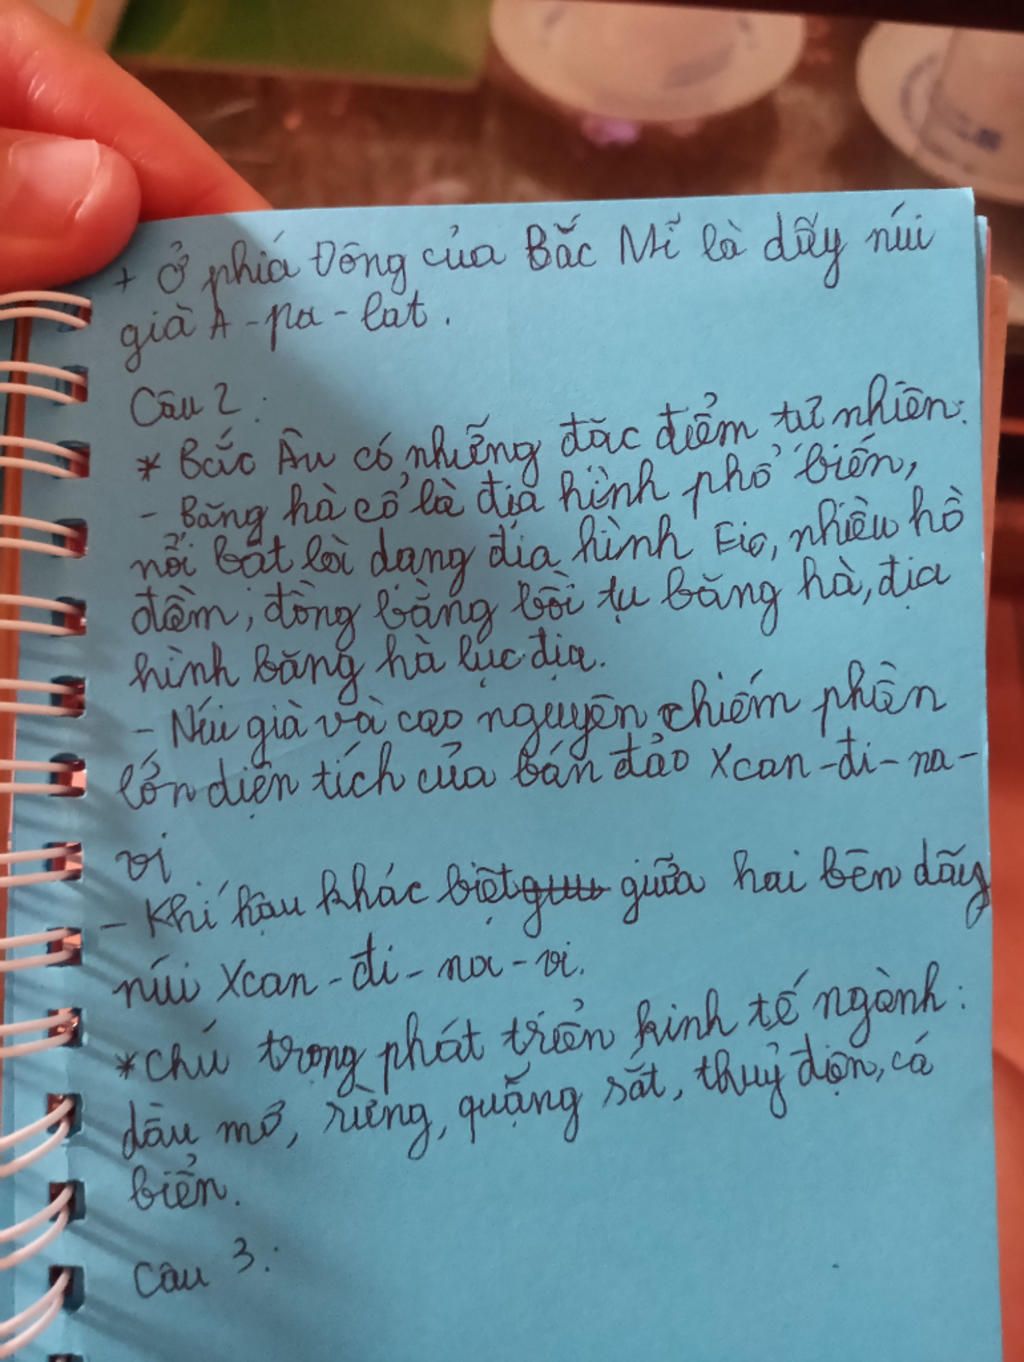 + Ở phía Đông của Bắc Mĩ là dãy núi
già A-pa-lat.
Câu 2:
* Bắc Âu có những đặc điểm tự nhiên:
- Băng hà cổ là địa hình phổ biến,
nổi bật lài dạng địa hình Fio, nhiều hồ
đầm, đồng bằng bồi tụ băng hà, địa
hình băng hà lục địa.
- Núi già và cao nguyên chiếm phần
lớn diện tích của bán đảo Xcan-đi-na-
vi
- Khí hậu khác biệt giữa hai bên dãy
núi Xcan-đi-na-vi.
* Chú trọng phát triển kinh tế ngành:
dầu mỏ, rừng, quặng sắt, thuỷ điện, cá
biển.
Câu 3: